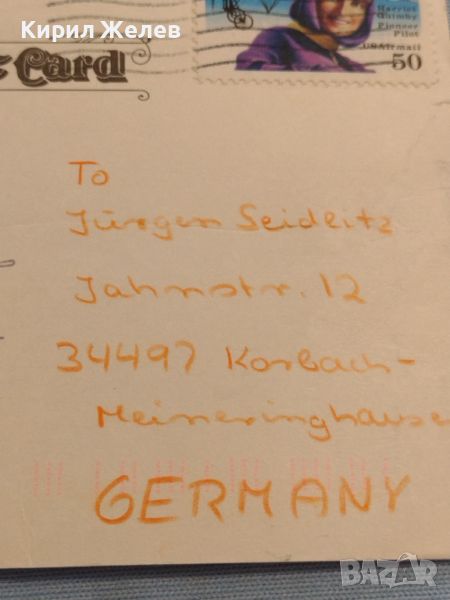 Кирил Желев
Card
Harriet
Quimby
Pioneer
Pilot
USAirmail
50
To
Jürgen Seidlitz
Jahnstr. 12
34497 Korbach-
Meineringhause
GERMANY
BAZAR